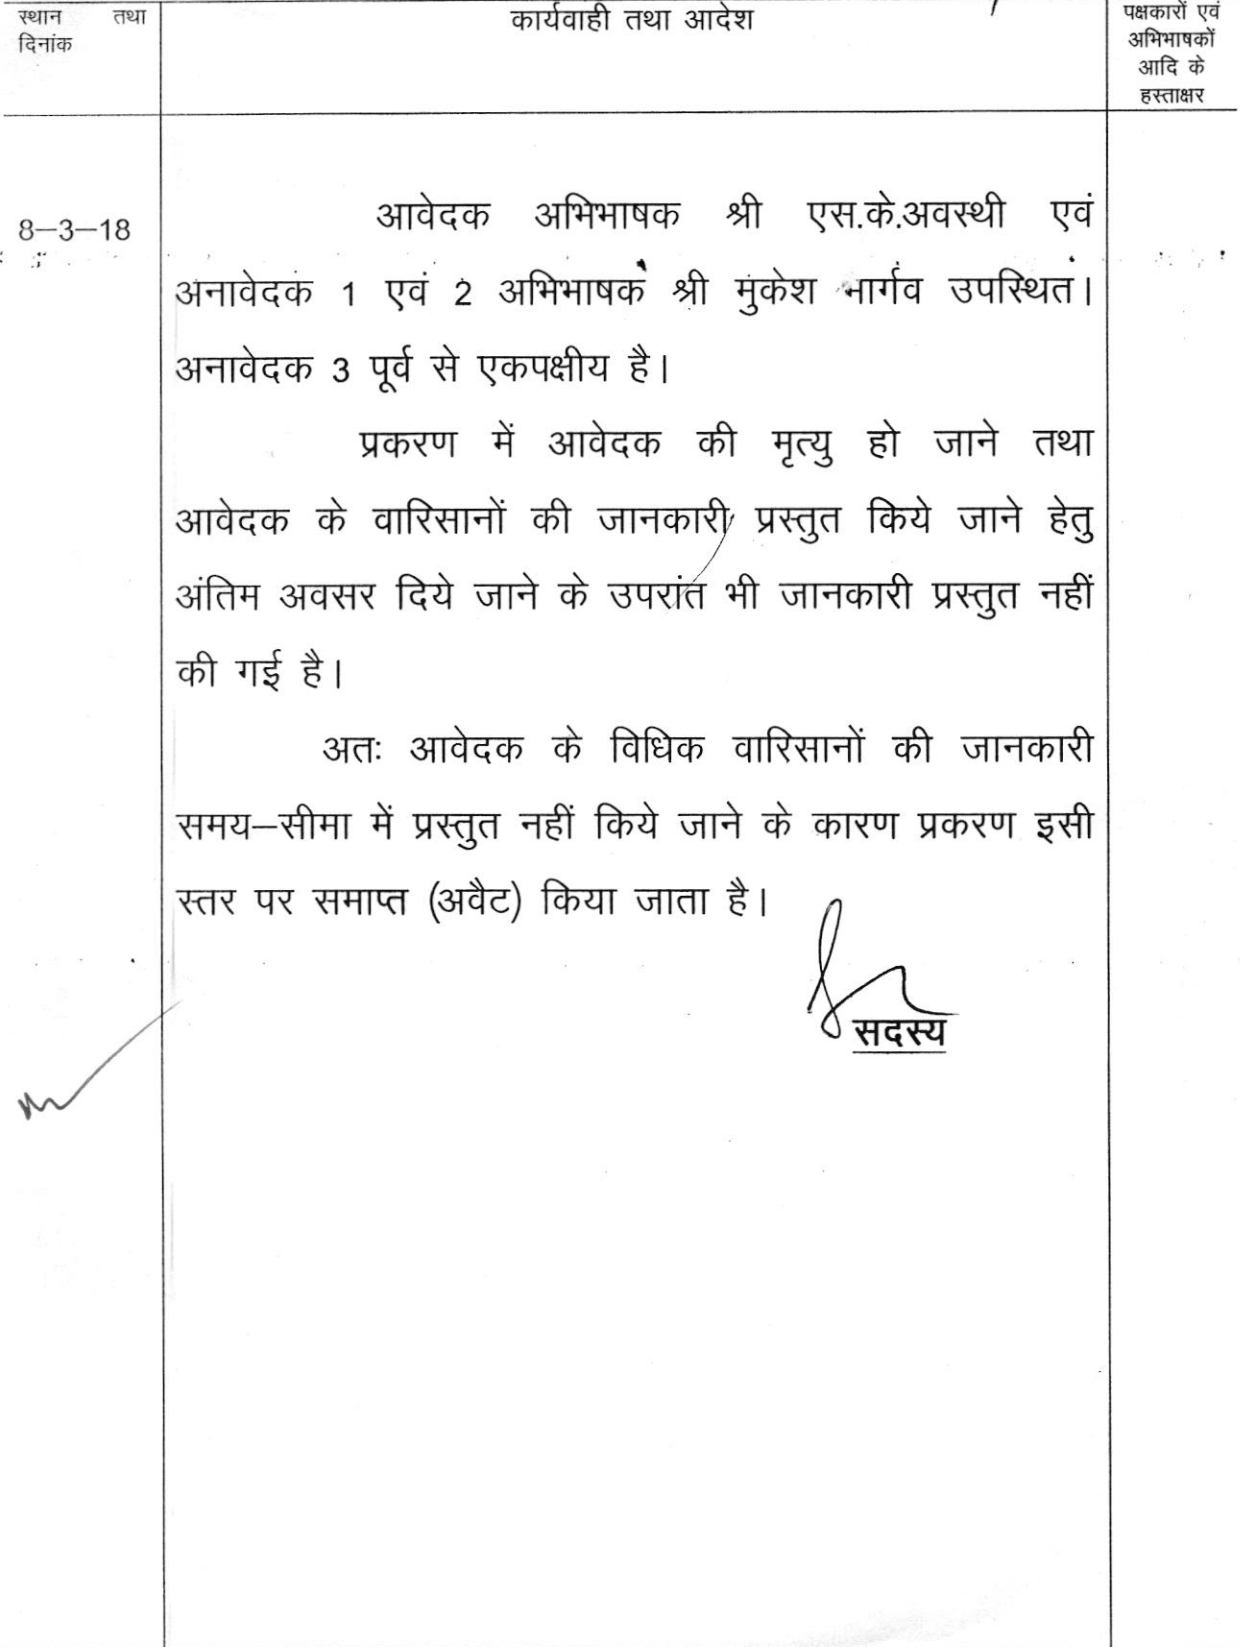 स्थान तथा
दिनांक
कार्यवाही तथा आदेश
पक्षकारों एवं
अभिभाषकों
आदि के
हस्ताक्षर
8–3–18
आवेदक अभिभाषक श्री एस.के.अवस्थी एवं
अनावेदक 1 एवं 2 अभिभाषक श्री मुकेश भार्गव उपस्थित।
अनावेदक 3 पूर्व से एकपक्षीय है।
प्रकरण में आवेदक की मृत्यु हो जाने तथा
आवेदक के वारिसानों की जानकारी प्रस्तुत किये जाने हेतु
अंतिम अवसर दिये जाने के उपरांत भी जानकारी प्रस्तुत नहीं
की गई है।
अतः आवेदक के विधिक वारिसानों की जानकारी
समय–सीमा में प्रस्तुत नहीं किये जाने के कारण प्रकरण इसी
स्तर पर समाप्त (अवैट) किया जाता है।
सदस्य